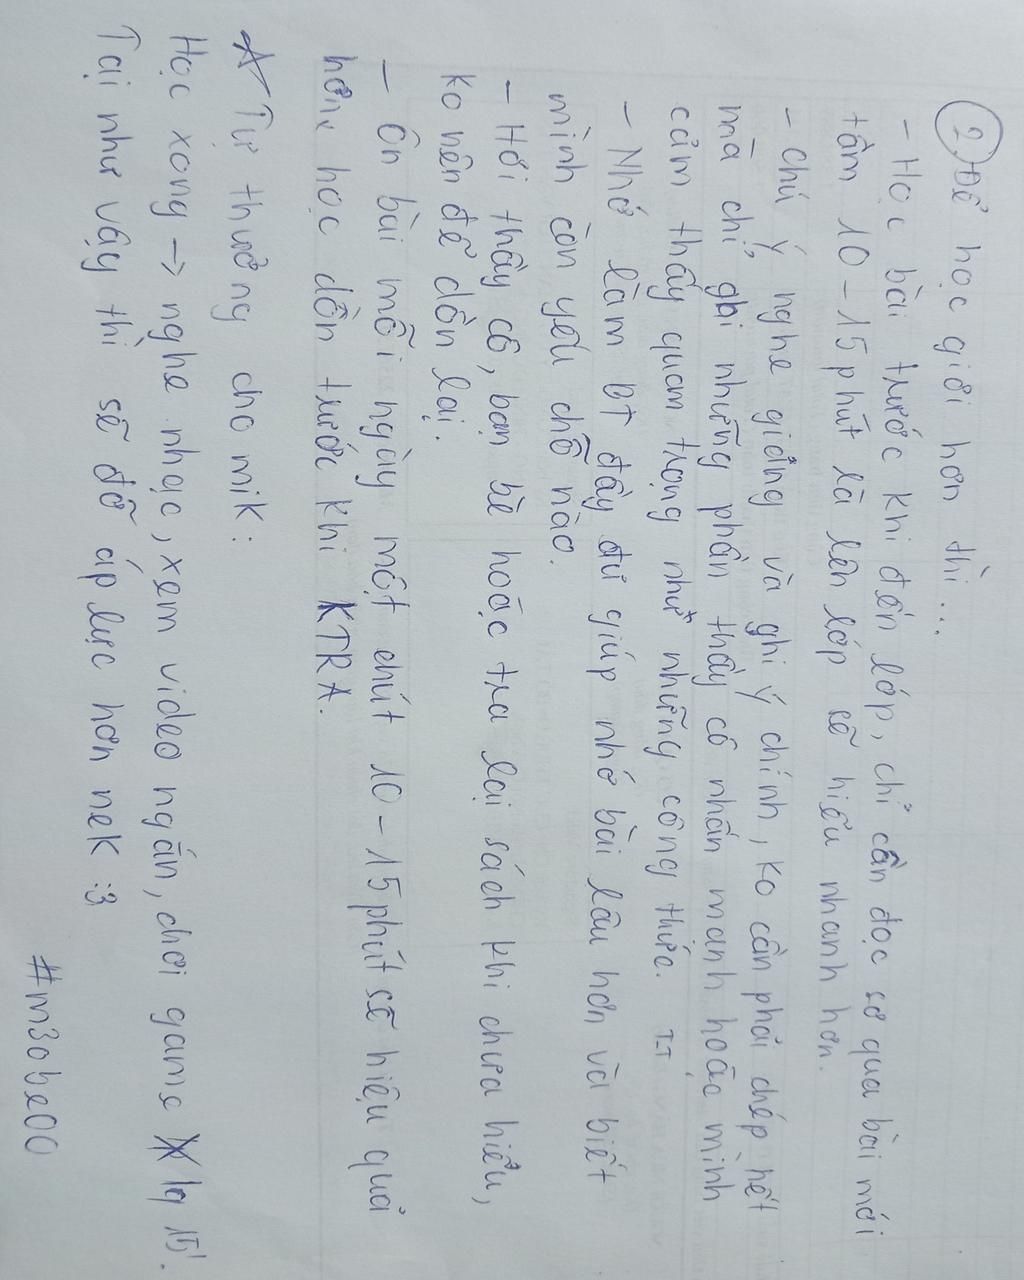 ② Để học giỏi hơn thì...
- Học bài trước khi đến lớp, chỉ cần đọc sơ qua bài mới
tầm 10 - 15 phút là lên lớp sẽ hiểu nhanh hơn.
- chú ý nghe giảng và ghi ý chính, ko cần phải chép hết
mà chỉ ghi những phần thầy cô nhấn mạnh hoặc mình
cảm thấy quan trọng như những công thức. T-T
- Nhớ làm BT đầy đủ giúp nhớ bài lâu hơn và biết
mình còn yếu chỗ nào.
- Hỏi thầy cô, bạn bè hoặc tra lại sách khi chưa hiểu,
ko nên để dồn lại.
- Ôn bài mỗi ngày một chút 10 - 15 phút sẽ hiệu quả
hơn học dồn trước khi KTRA.
☆ Tự thưởng cho mik:
Học xong → nghe nhạc, xem video ngắn, chơi game 15'.
Tại như vậy thì sẽ đỡ áp lực hơn nek :3
#m3obe00